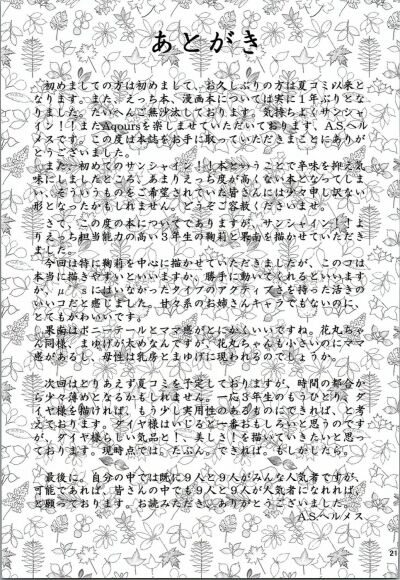 あとがき
初めましての方は初めまして、お久しぶりの方は夏コミ以来と
なります。また、えっち本、漫画本については実に１年ぶりとな
りました。たいへんご無沙汰しております。気持ちよくサンシャ
イン！！またAqoursを楽しませていただいております、A.S.ヘル
メスです。この度は本誌をお手に取っていただきまことにありが
とうございました。
また、初めてのサンシャイン！！本ということで辛味を抑え気
味にしましたところ、あまりえっち度が高くない本となってしま
い、そういうものをご希望されていた皆さんには少々申し訳ない
形となったかもしれません。どうぞご容赦くださいませ。
さて、この度の本についてでありますが、サンシャイン！！よ
りえっち担当能力の高い３年生の鞠莉と果南を描かせていただき
ました。
今回は特に鞠莉を中心に描かせていただきましたが、このコは
本当に描きやすいといいますか、勝手に動いてくれるといいます
が、μ'sにはいなかったタイプのアクティブさを持った活きの
いいコだと感じました。甘々系のお姉さんキャラでもないのに、
とてもかわいいです。
果南はポニーテールとママ感がとにかくいいですね。花丸ちゃ
ん同様、まゆげが太めなんですが、花丸ちゃんも小さいのにママ
感があるし、母性は乳房とまゆげに現われるのでしょうか。
次回はとりあえず夏コミを予定しておりますが、時間の都合か
ら少々薄めとなるかもしれません。一応３年生のもうひとり、ダ
イヤ様を描ければ、もう少し実用性のあるものにできれば、と考
えております。ダイヤ様はいじると一番おもしろいと思うのです
が、ダイヤ様らしい気品と！、美しさ！を描いていきたいと思っ
ております。現時点では。たぶん。できれば。もしかしたら。
最後に、自分の中では既に９人と９人がみんな人気者ですが、
可能であれば、皆さんの中でも９人と９人が人気者になれれば、
と願っております。お読みただき、ありがとうございました。
A.S.ヘルメス
21